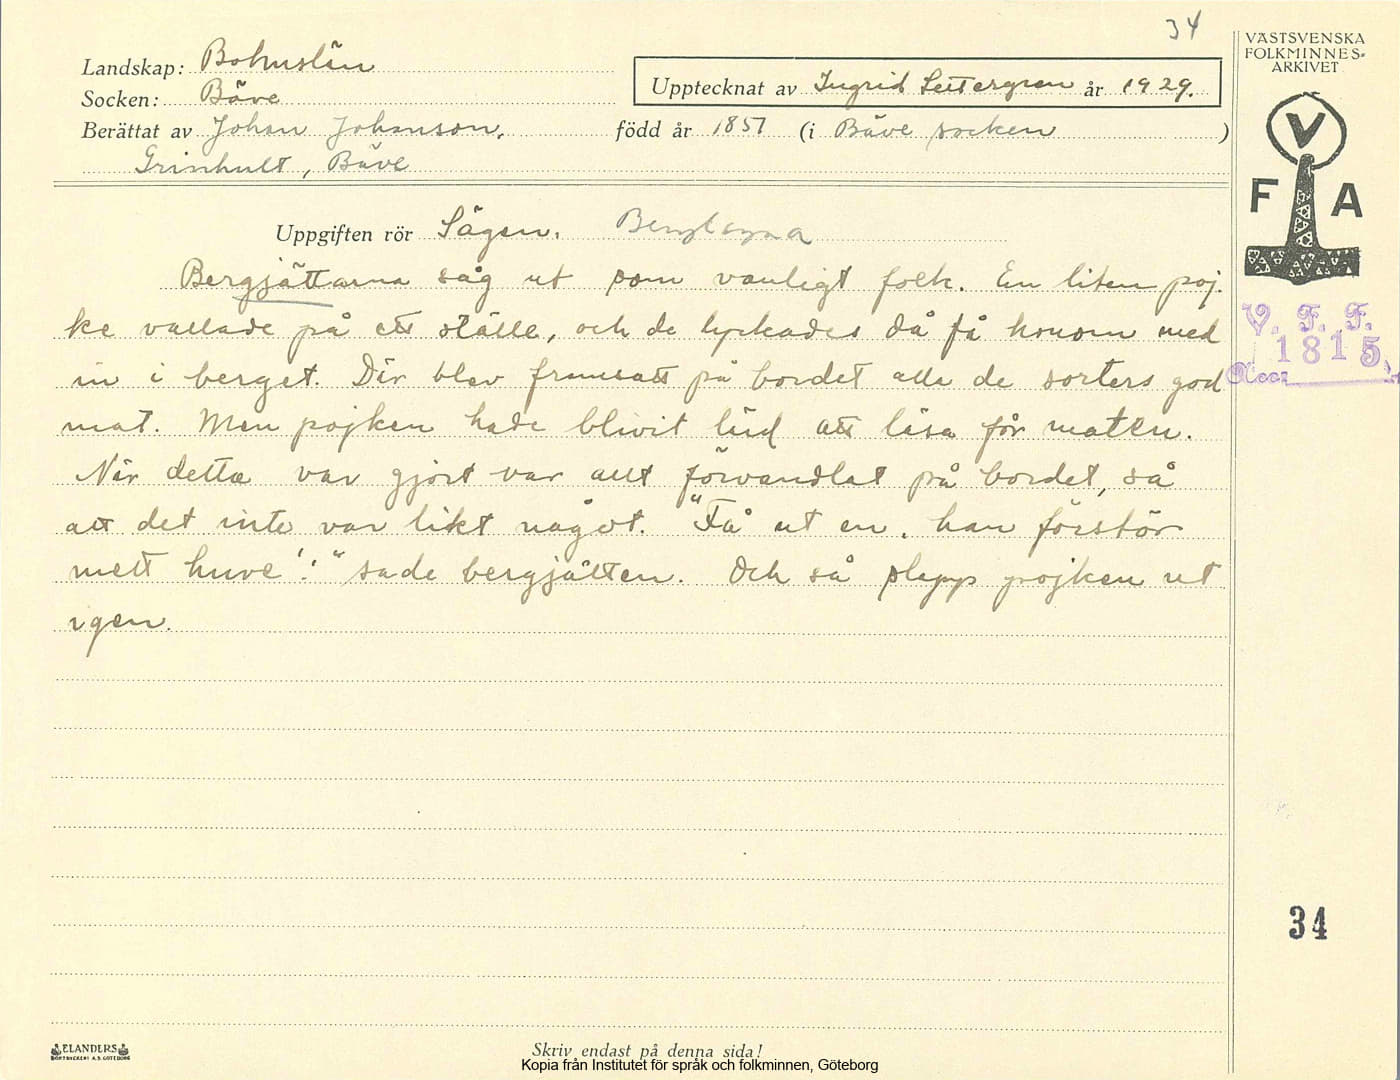 34
Landskap: Bohuslän
Socken: Bäve
Upptecknat av Ingrid år 1929.
Berättat av Johan Johanson, född år 1857 (i Bäve socken )
Grinhult, Bäve
VÄSTSVENSKA
FOLKMINNES-
ARKIVET
V
F A
Uppgiften rör Sägen. Bergtagna
Bergjättarna såg ut som vanligt folk. En liten poj-
ke vallade på ett ställe, och de lyckades då få honom med
in i berget. Där blev framsatt på bordet alla de sorters god
mat. Men pojken hade blivit lärd att läsa för maten.
När detta var gjort var allt förvandlat på bordet, så
att det inte var likt något. "Få ut en, han förstör
mett huve!" sade bergjätten. Och så slapp pojken ut
igen.
V. F. F.
1815
34
ELANDERS
BOKTRYCKERI A.B. GÖTEBORG
Skriv endast på denna sida!
Kopia från Institutet för språk och folkminnen, Göteborg